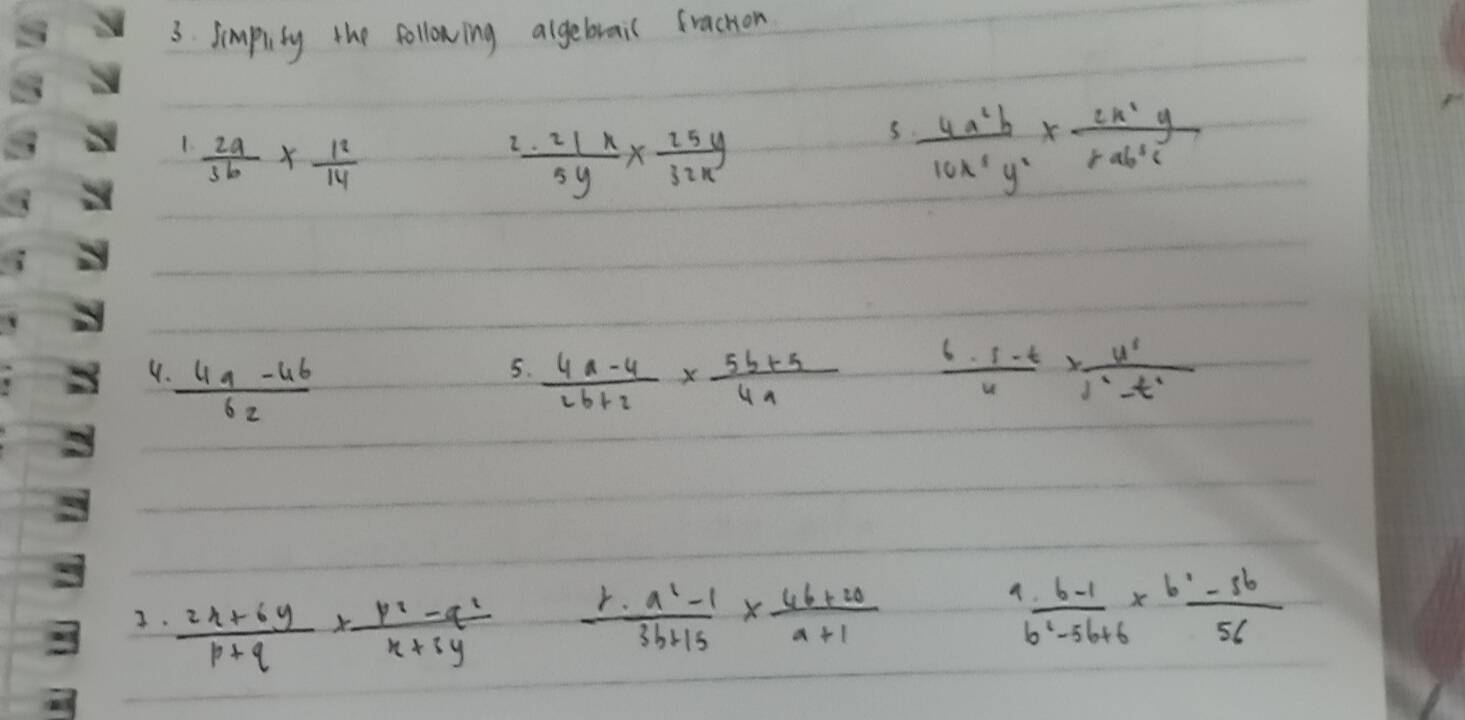 3. Simplify the following algebraic fraction.
1. 2a/3b × 12/14 2. 21x/5y × 25y/32x 3. 4a²b/10x³y² × 2x²y/8ab³c
4. 4a - 4b/6z 5. 4a - 4/2b + 2 × 5b + 5/4a 6. s - t/u × u³/s² - t²
7. 2x + 6y/p + q × p² - q²/x + 3y 8. a² - 1/3b + 15 × 4b + 20/a + 1 9. b - 1/b² - 5b + 6 × b² - 3b/5b